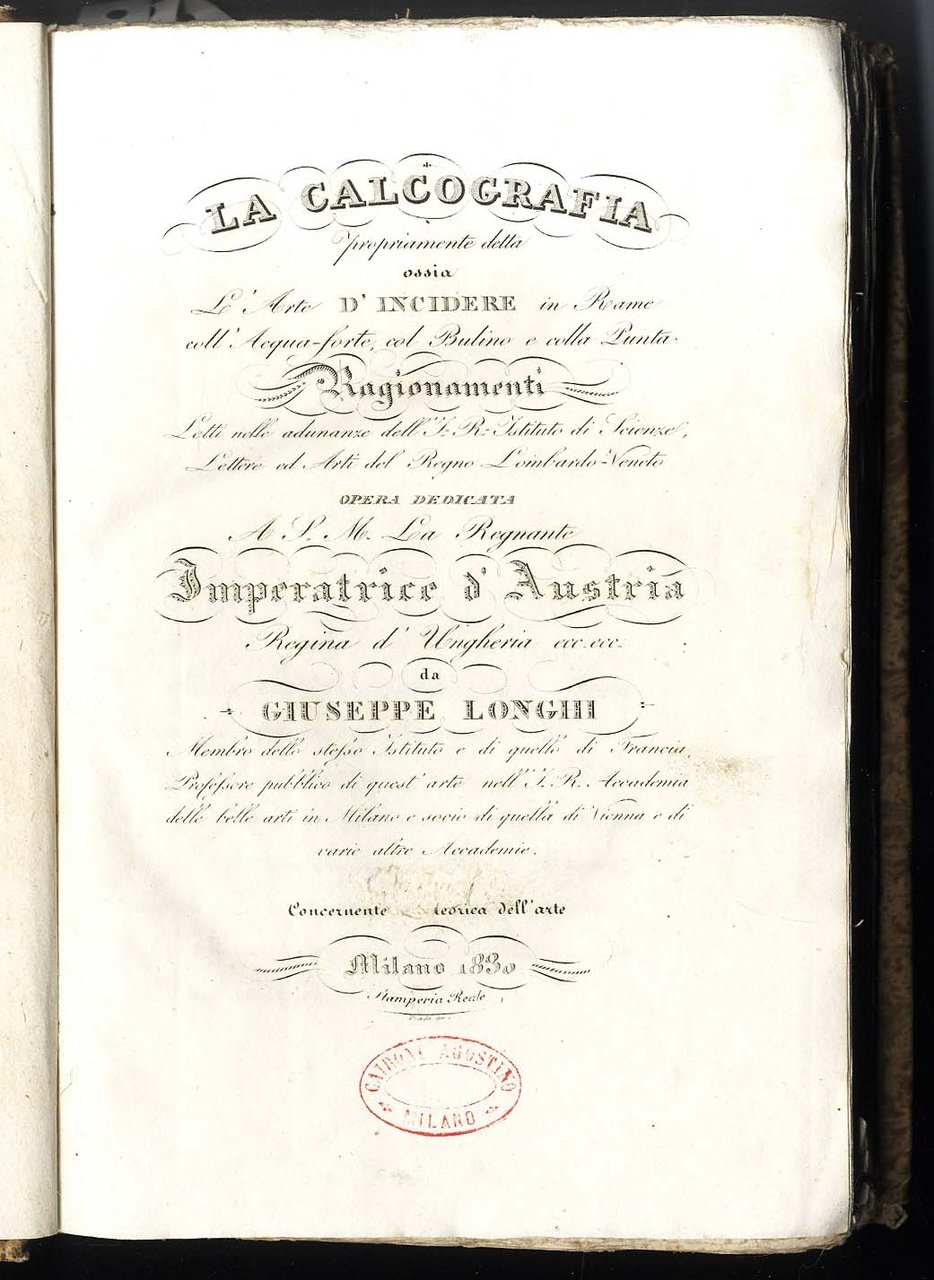 LA CALCOGRAFIA
propriamente detta
ossia
L'Arte D'INCIDERE in Rame
coll'Acqua-forte, col Bulino e colla Punta.
Ragionamenti
Letti nelle adunanze dell'I. R. Istituto di Scienze,
Lettere ed Arti del Regno Lombardo-Veneto
OPERA DEDICATA
A S. M. La Regnante
Imperatrice d'Austria
Regina d'Ungheria ecc. ecc.
da
GIUSEPPE LONGHI
Membro dello stesso Istituto e di quello di Francia,
Professore pubblico di quest'arte nell'I. R. Accademia
delle belle arti in Milano e socio di quella di Vienna e di
varie altre Accademie.
Concernente teorica dell'arte
Milano 1830
Stamperia Reale
CAIRONI AGOSTINO
MILANO